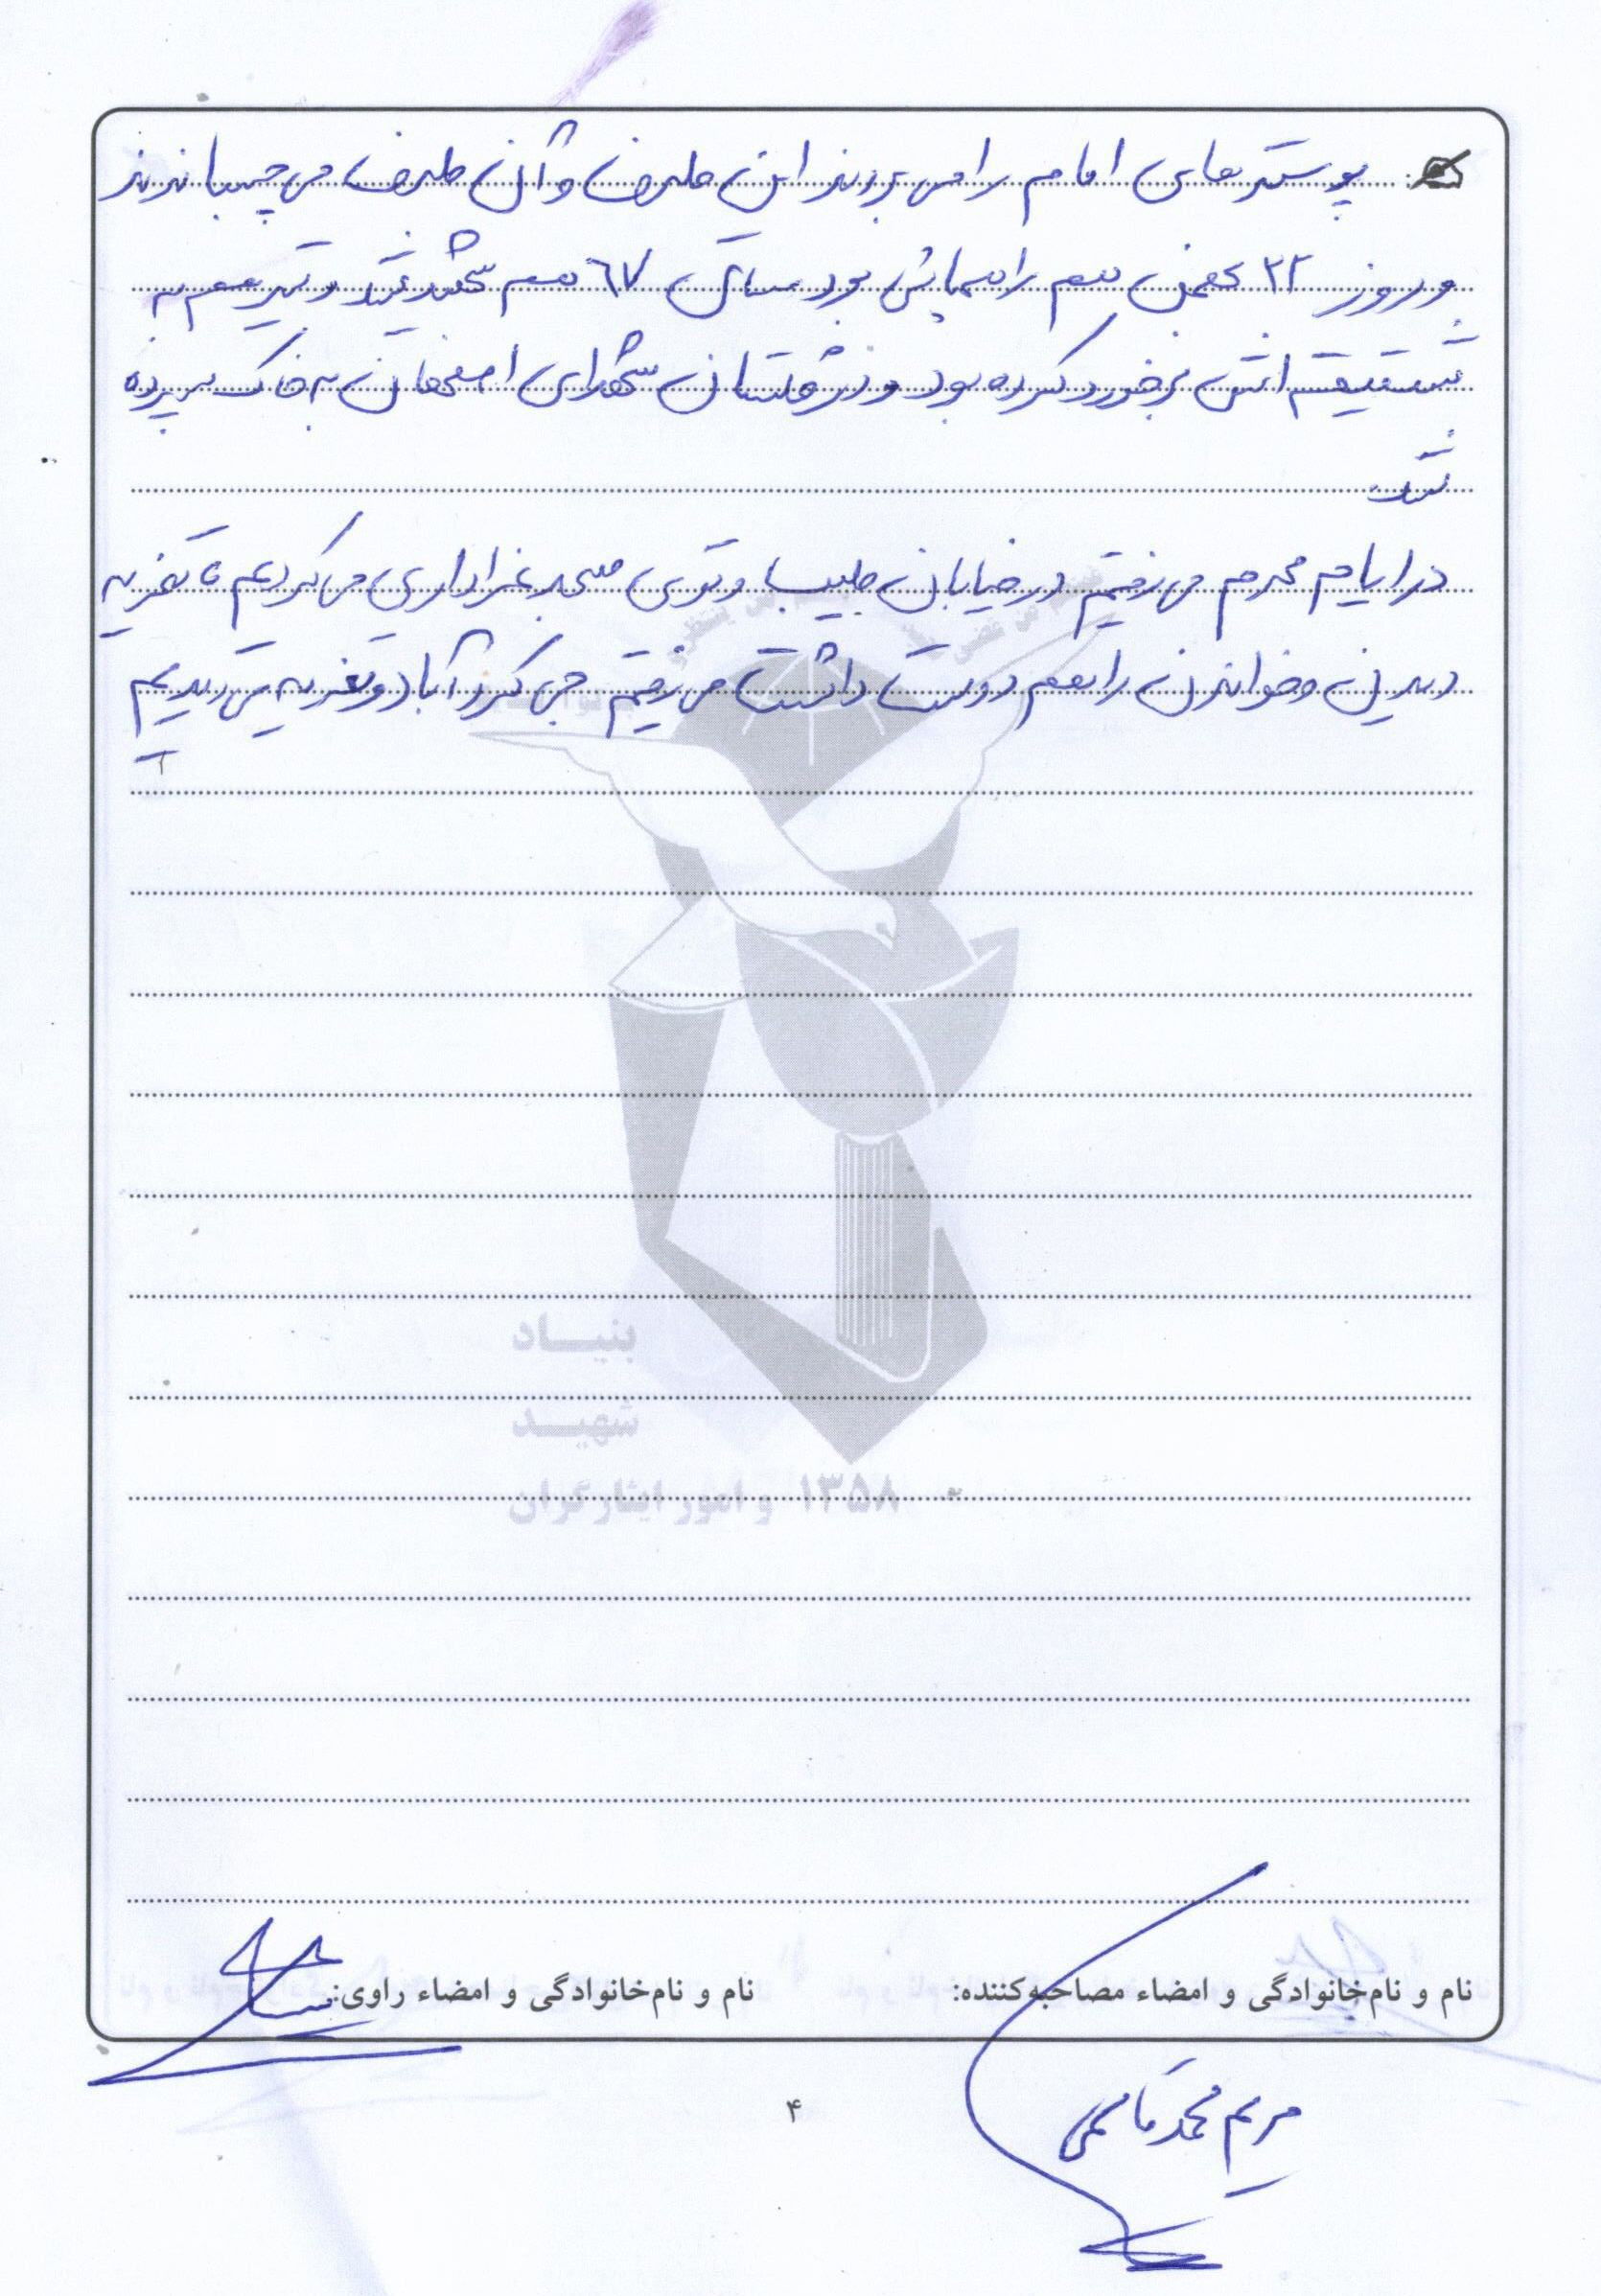 پوسترهای امام را می بردند این طرف و آن طرف می چسباندند
و روز ۲۲ بهمن هم راهپیمائی بود ساک ٦٧ هم شهید شد و تیر هم به
شقیقه اش برخورد کرده بود و در گلستان شهدای اصفهان به خاک سپرده
شد
در ایام محرم می رفتیم در خیابان طیب و توی مسجد عزاداری می کردیم تا تعزیه
دیدن و خواندن را هم دوست داشت می رفتیم جی گرد آباد و تعزیه می دیدیم
بنیاد
شهید
۱۳۵۸ و امور ایثارگران
نام و نام‌خانوادگی و امضاء مصاحبه‌کننده:
نام و نام‌خانوادگی و امضاء راوی:
مریم محمد قاسمی
۴